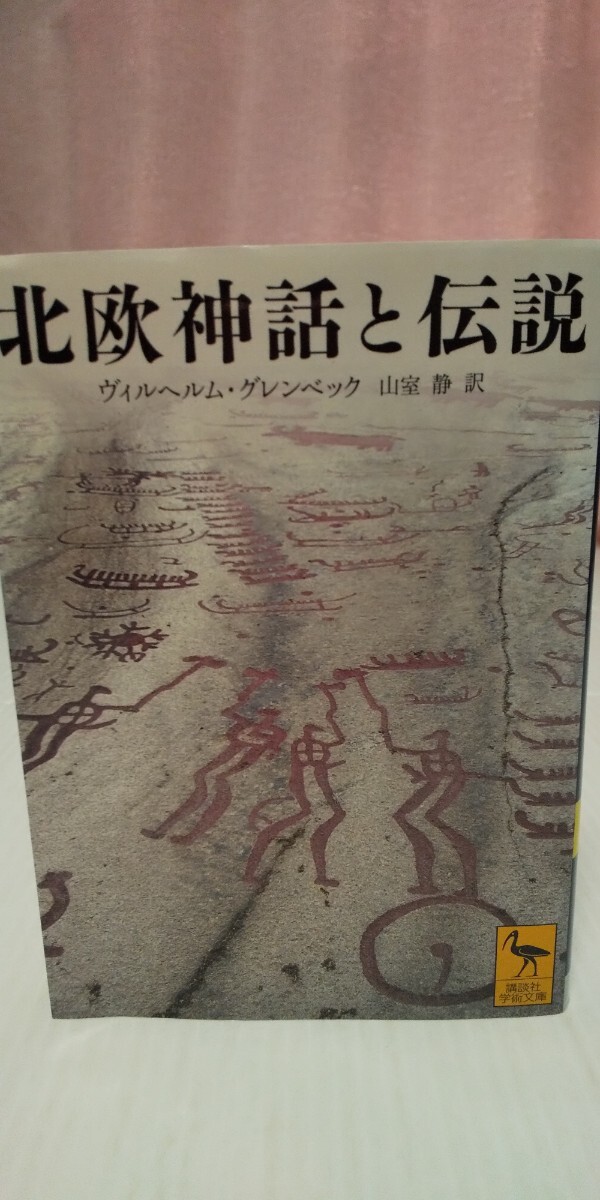 北欧神話と伝説
ヴィルヘルム・グレンベック 山室 静 訳
講談社
学術文庫